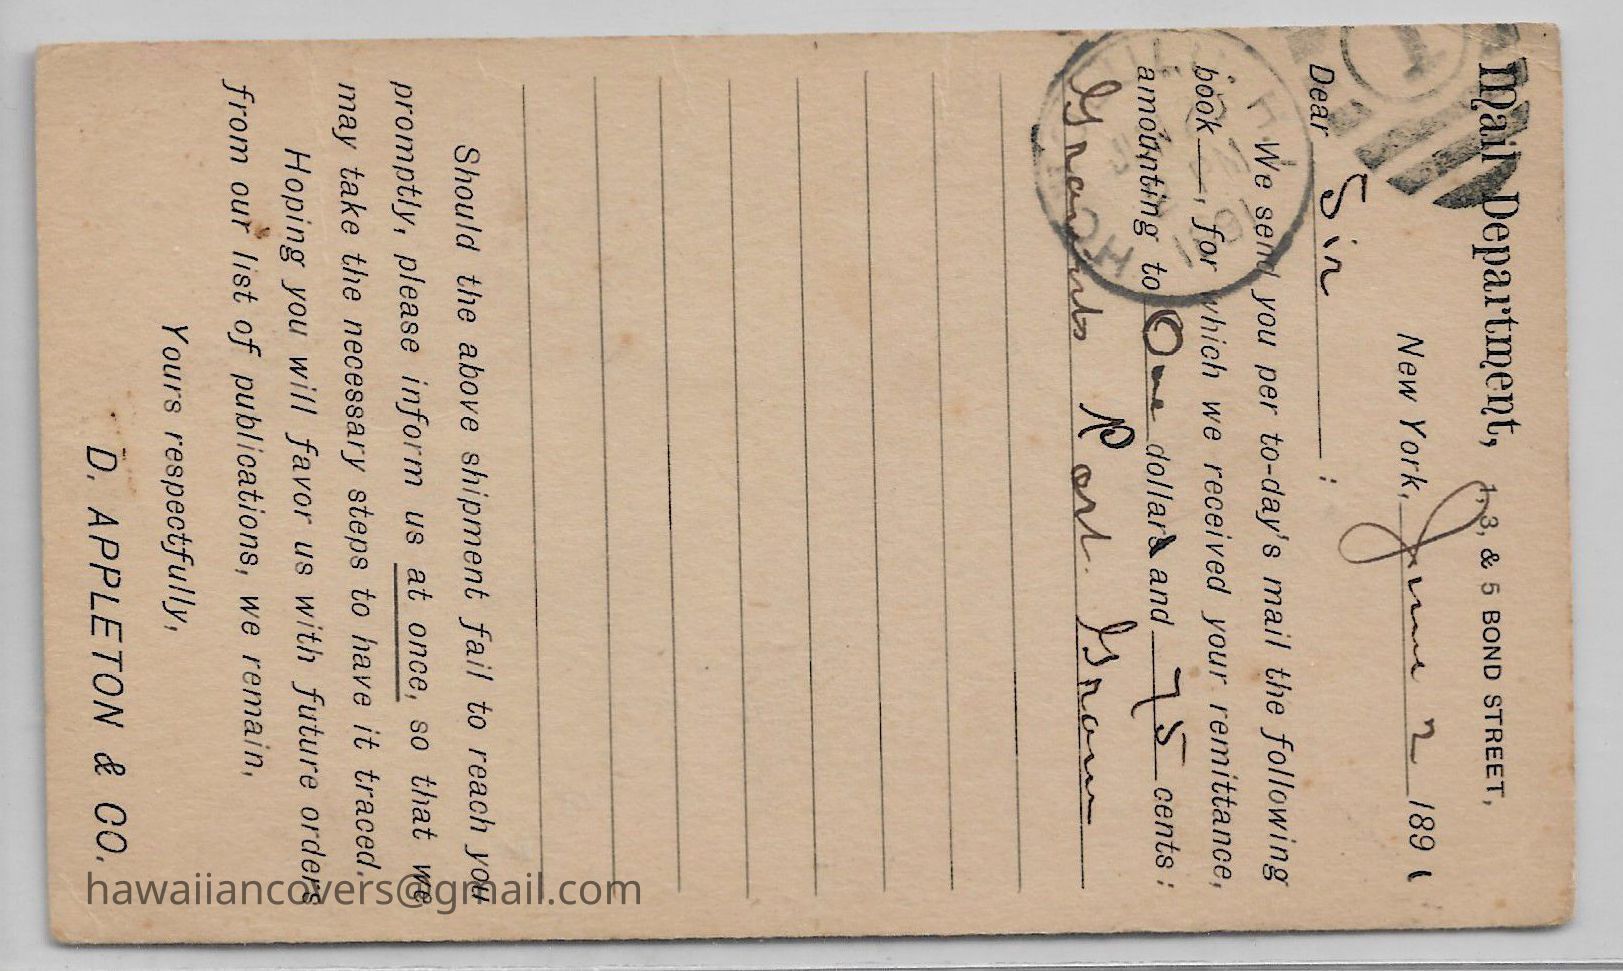 Mail Department, 1, 3, & 5 BOND STREET,
New York, June 2 1891
Dear Sir ;
We send you per to-day's mail the following
book—, for which we received your remittance,
amounting to One dollar and 75 cents:
Port.
Should the above shipment fail to reach you
promptly, please inform us at once, so that we
may take the necessary steps to have it traced.
Hoping you will favor us with future orders
from our list of publications, we remain,
Yours respectfully,
D. APPLETON & CO.
1
HO
1891
hawaiiancovers@gmail.com